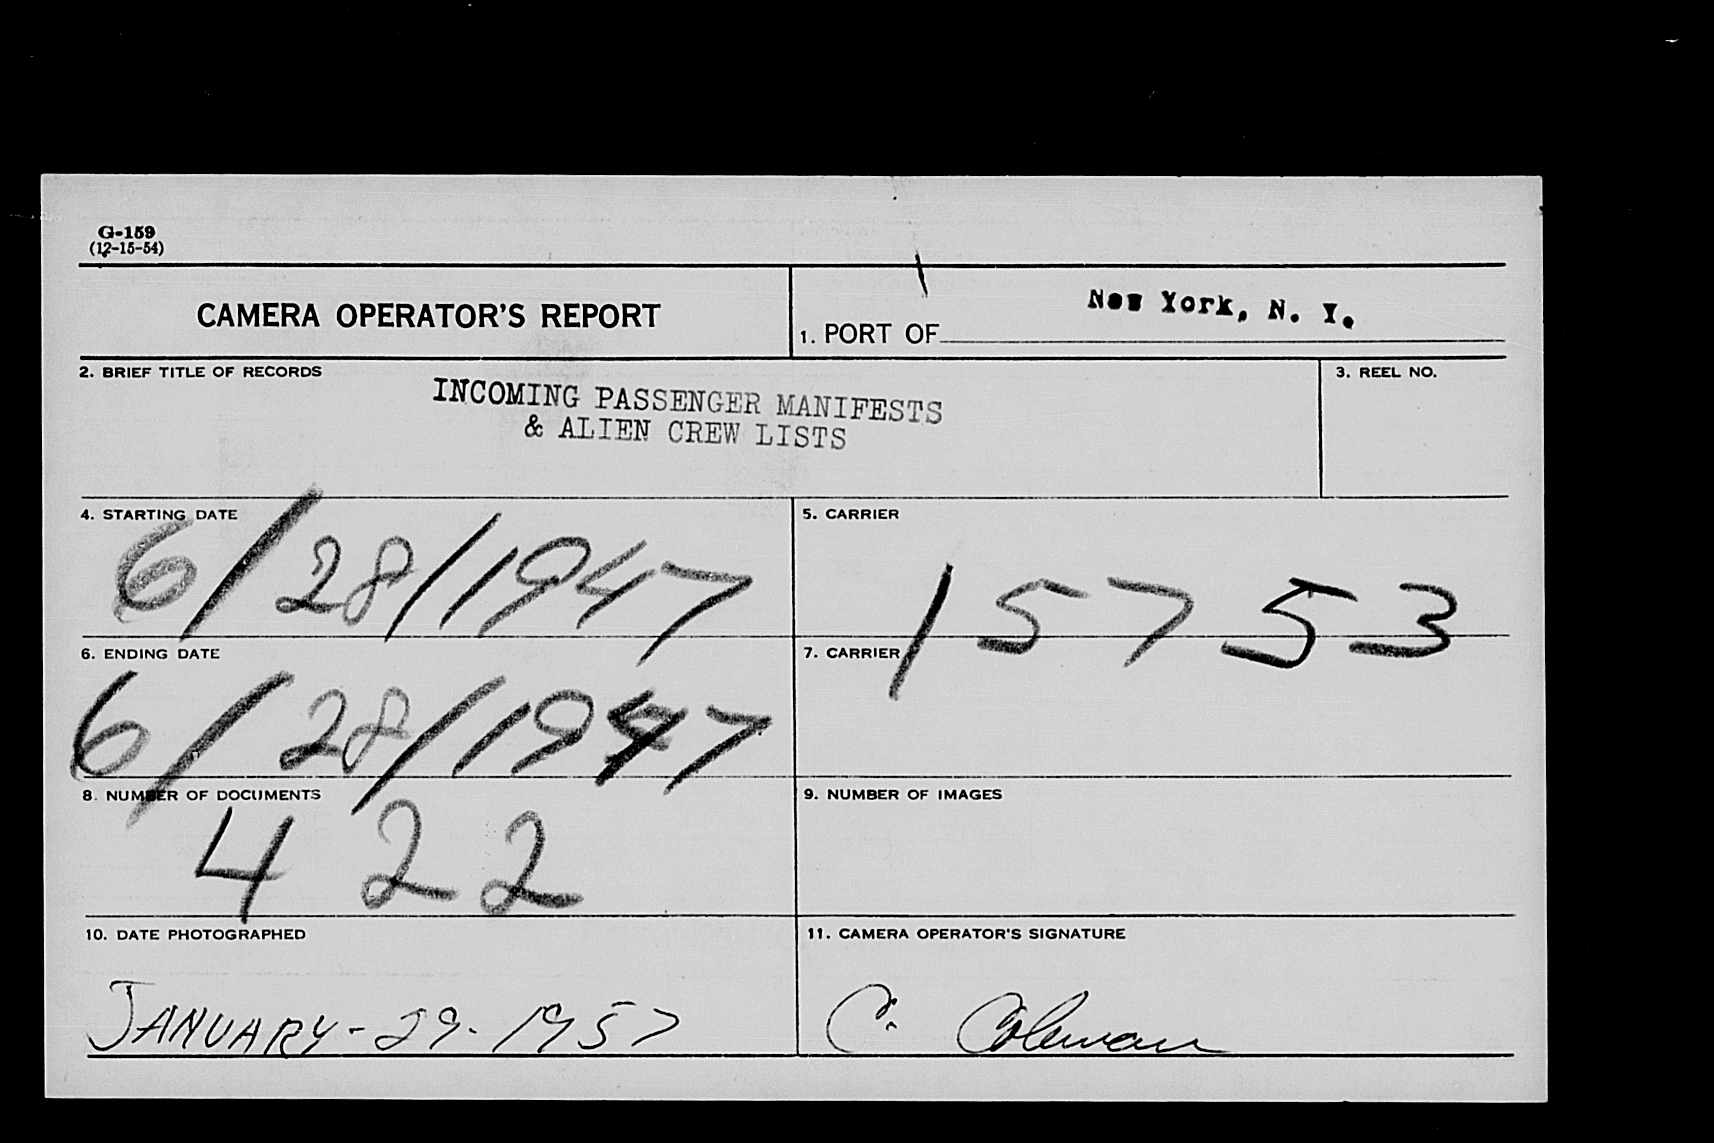 G-159
(12-15-54)
CAMERA OPERATOR'S REPORT
1. PORT OF New York, N. Y.
2. BRIEF TITLE OF RECORDS
INCOMING PASSENGER MANIFESTS
& ALIEN CREW LISTS
3. REEL NO.
4. STARTING DATE
6/28/1947
5. CARRIER
15753
6. ENDING DATE
6/28/1947
7. CARRIER
8. NUMBER OF DOCUMENTS
422
9. NUMBER OF IMAGES
10. DATE PHOTOGRAPHED
JANUARY-29-1957
11. CAMERA OPERATOR'S SIGNATURE
C. Coleman